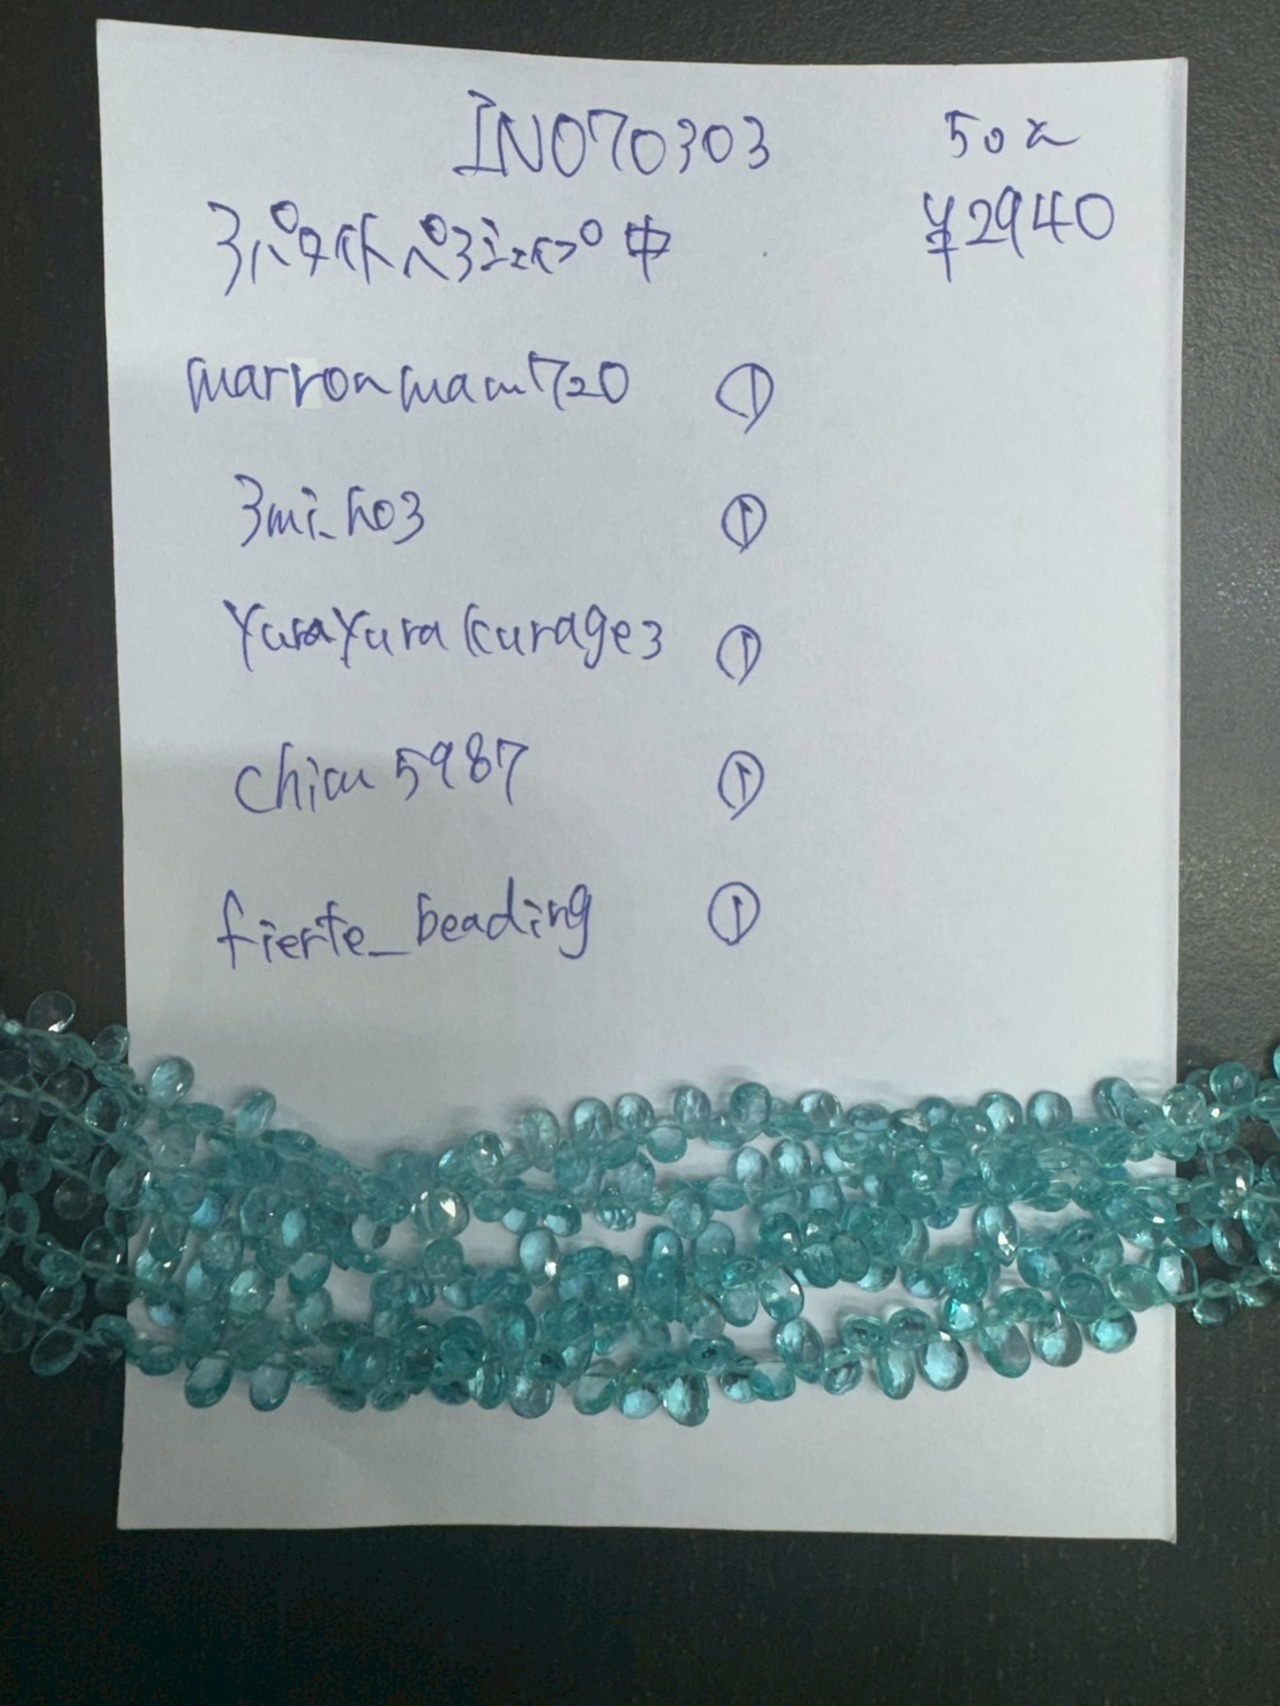 INO70303 50%
¥2940
marronmam720 ①
3mi_ho3 ①
YuraYurakurage3 ①
chiau5987 ①
fierte_beading ①